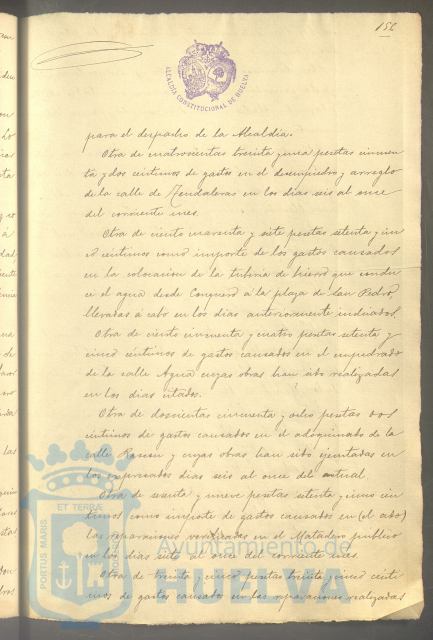 152
ALCALDIA CONSTITUCIONAL DE HUELVA
para el despacho de la Alcaldia.
Otra de cuatrocientas treinta y una pesetas cincuen
ta y dos centimos de gastos en el desempiedro y arreglo
de la calle de Tendaleras en los dias seis al once
del corriente mes.
Otra de ciento cuarenta y siete pesetas setenta y cin
co centimos como importe de los gastos causados
en la colocacion de la tuberia de hierro que condu
ce el agua desde Conquero á la plaza de San Pedro,
llevadas á cabo en los dias anteriormente indicados.
Otra de ciento cincuenta y cuatro pesetas setenta y
cinco centimos de gastos causados en el empedrado
de la calle Agua cuyas obras han sido realizadas
en los dias citados.
Otra de doscientas cincuenta y ocho pesetas dos
centimos de gastos causados en el adoquinado de la
calle Rascon y cuyas obras han sido ejecutadas en
los expresados dias seis al once del actual
Otra de sesenta y nueve pesetas setenta y cinco cen
timos como importe de gastos causados en (el ado)
las reparaciones verificadas en el Matadero publico
en los dias seis al once del corriente mes.
Otra de treinta y cinco pesetas treinta y cinco centi
mos de gastos causados en las reparaciones realizadas
PORTUS MARIS ET TERRÆ CUSTODIA
Ayuntamiento de
HUELVA